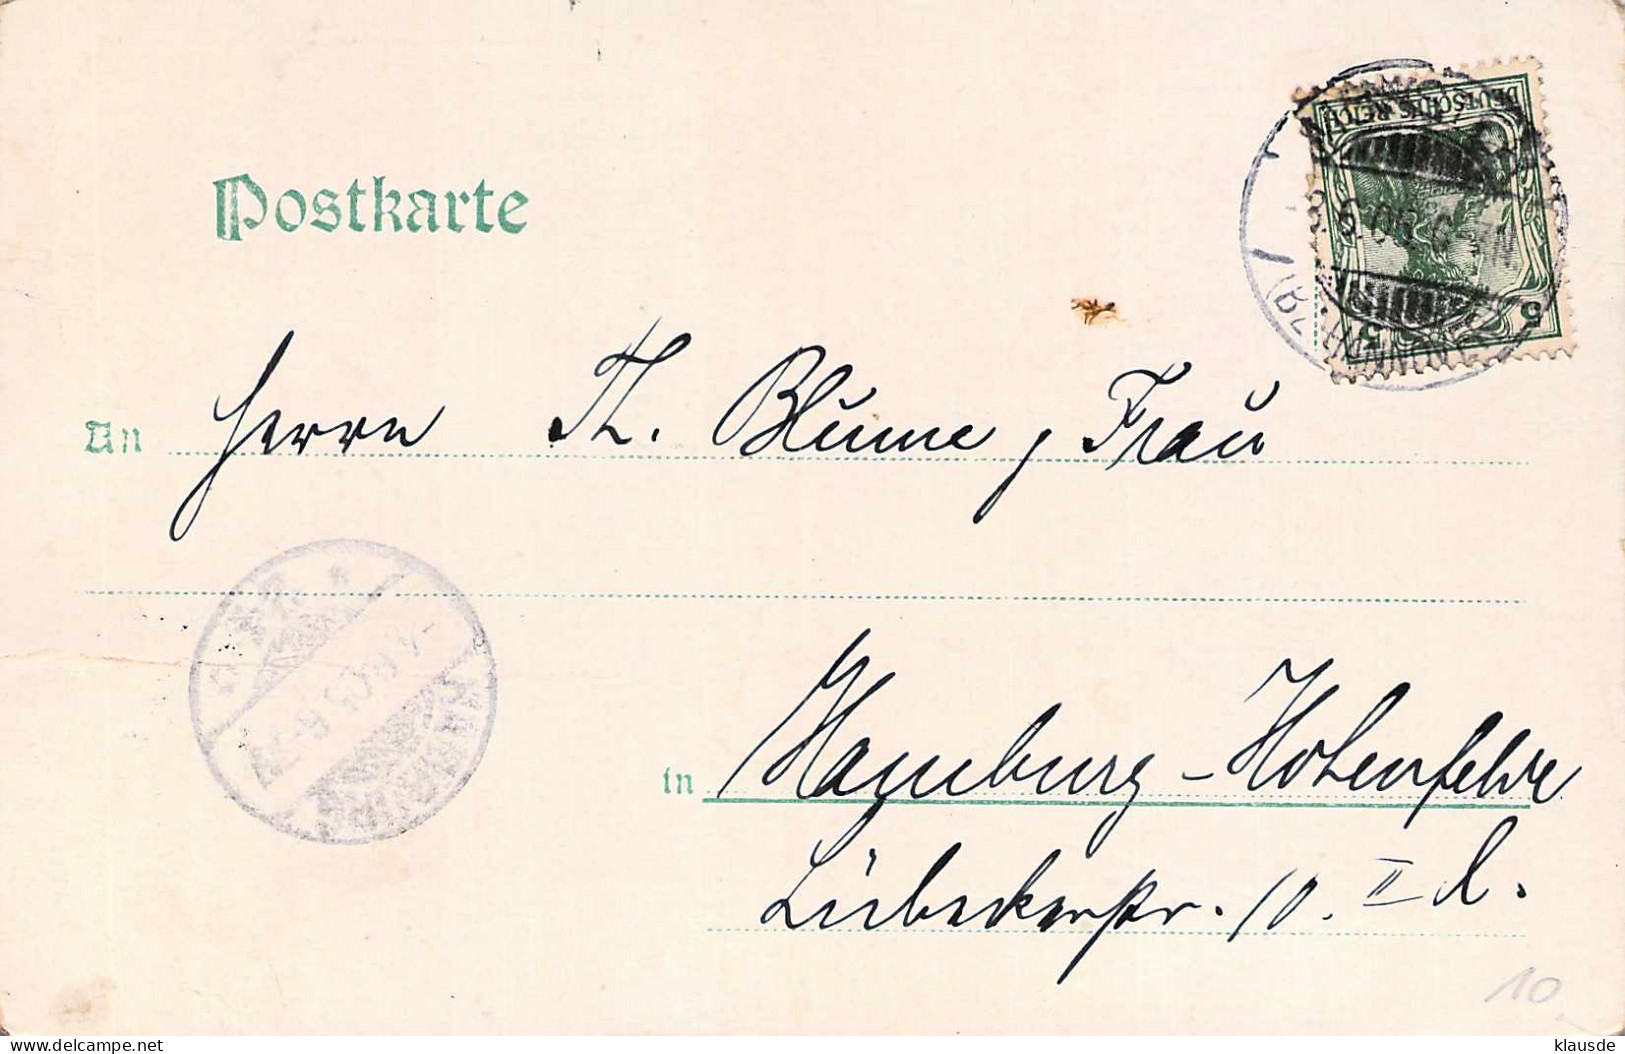 Postkarte
DEUTSCHES REICH
5 5
An Herrn Th. Blume, Frau
in Hamburg-Hohenfelde
Lübeckerstr. 10. II l.
HAMBURG
10
klausde